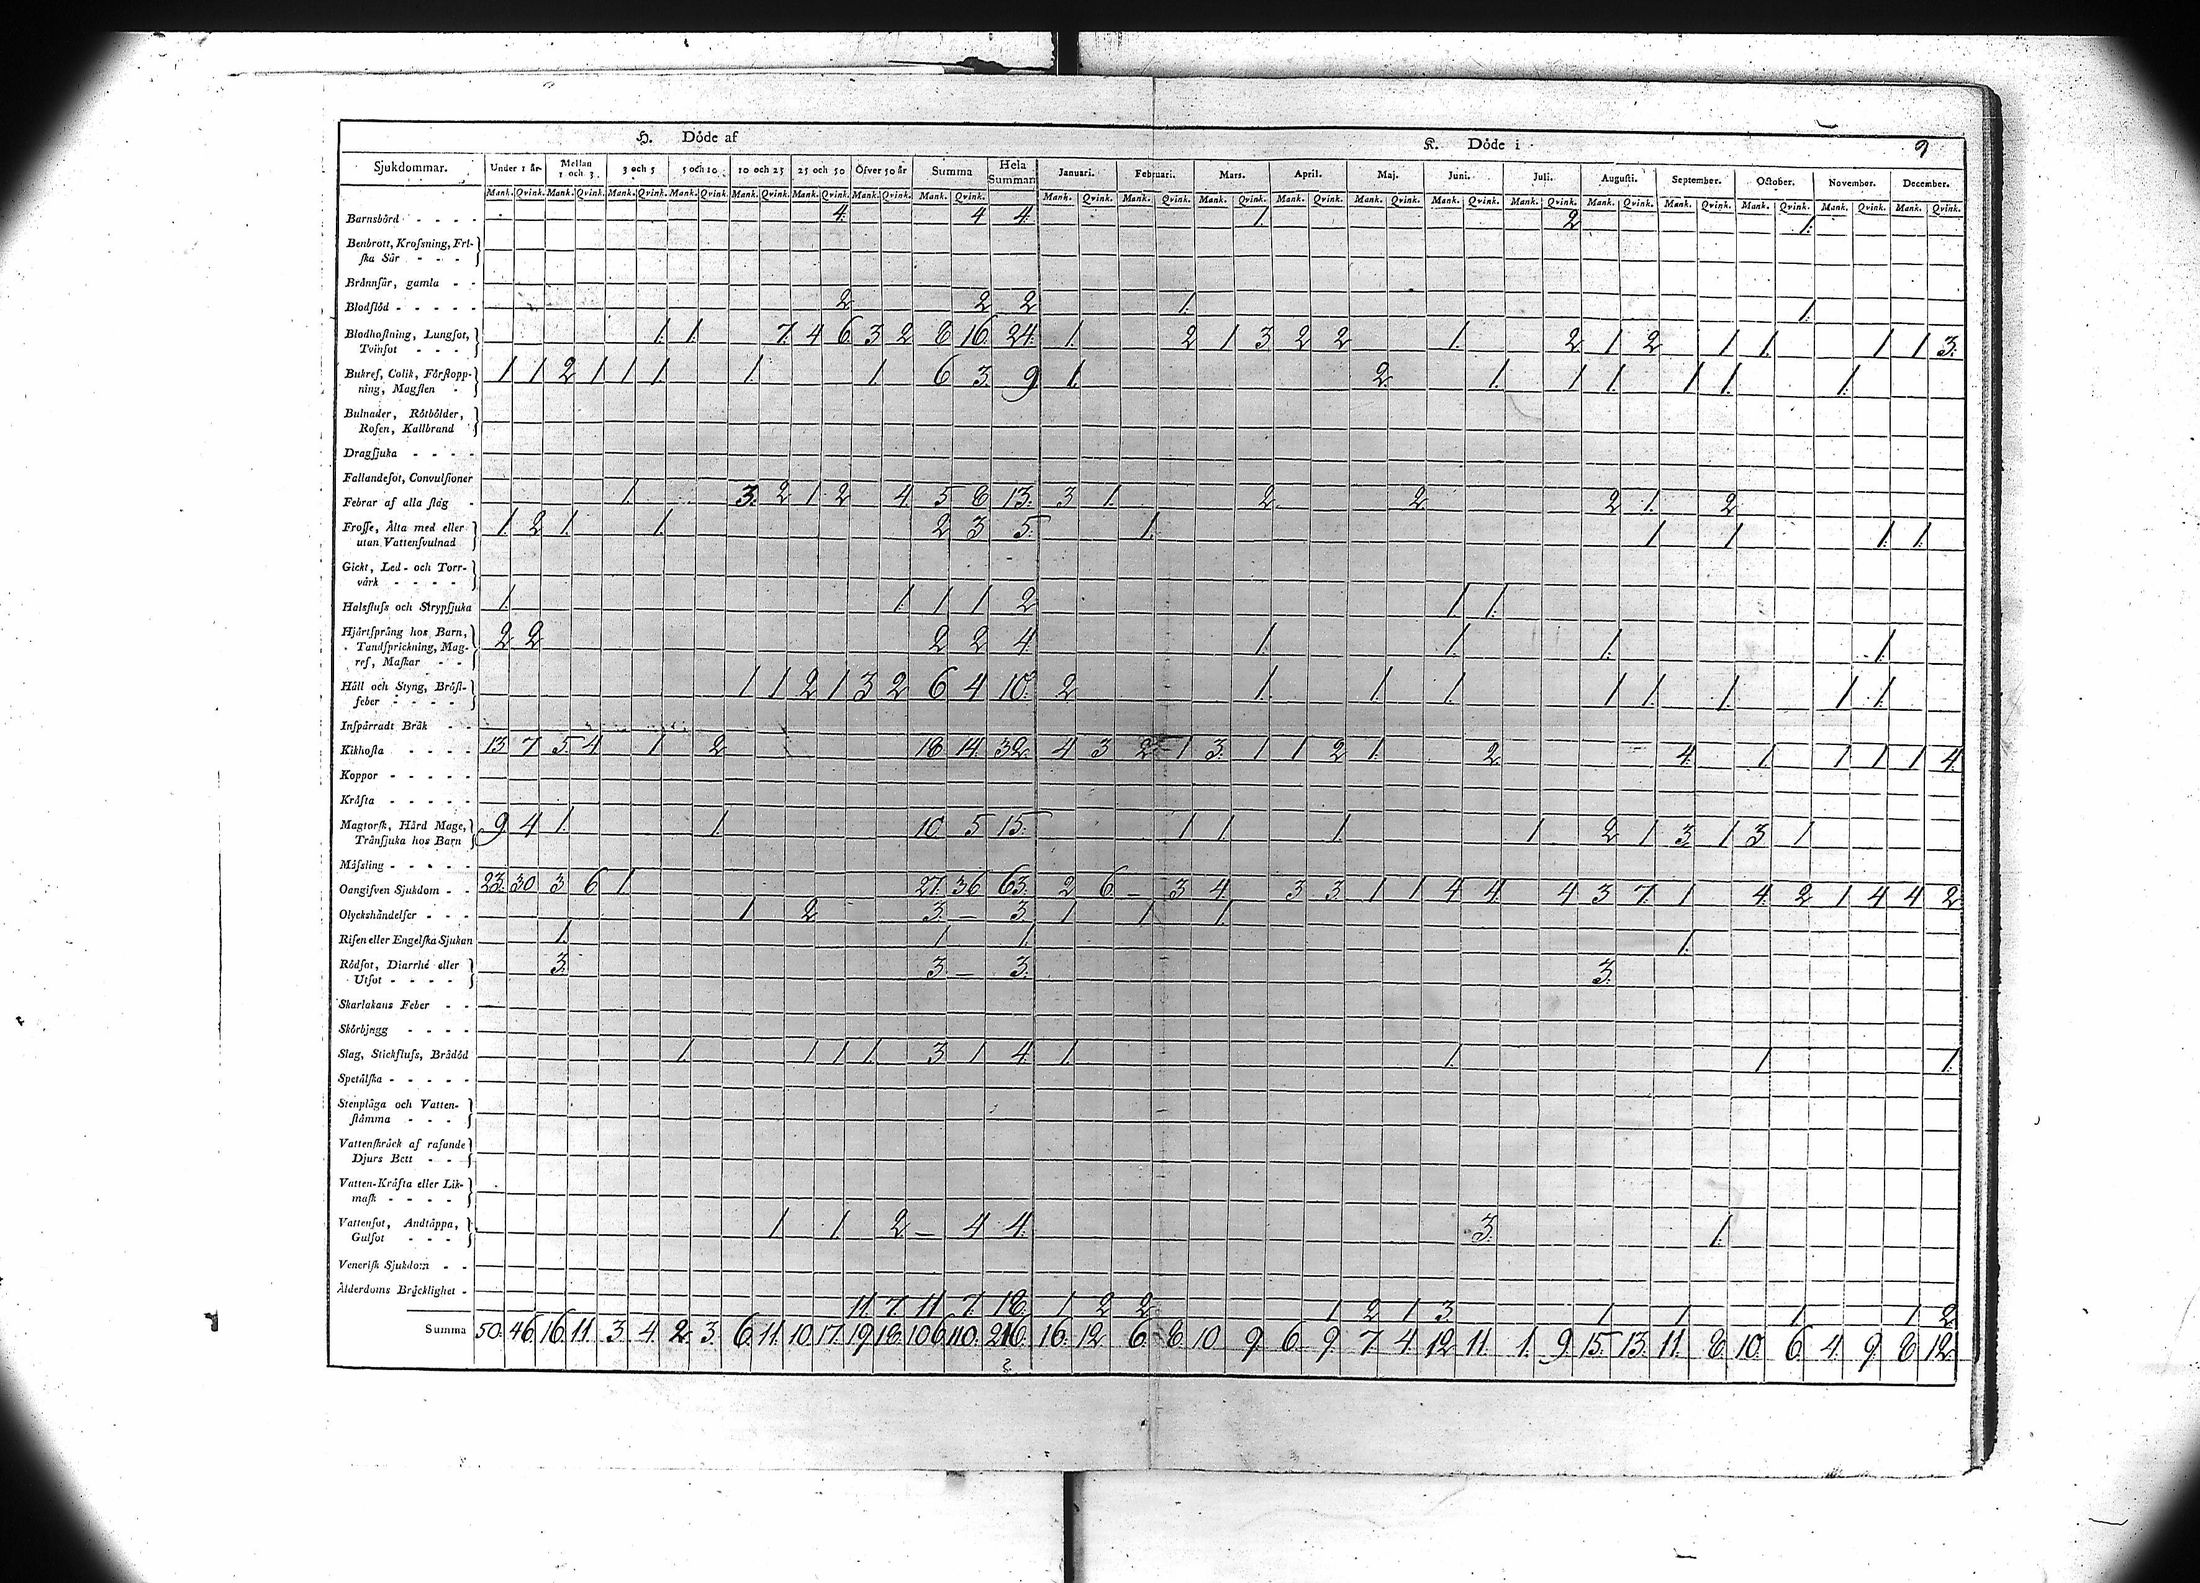 H. Döde af K. Döde i 9
Sjukdommar. Under 1 år. Mellan 1 och 3. 3 och 5 5 och 10. 10 och 25 25 och 50 Öfver 50 år Summa Hela Summan Januari. Februari. Mars. April. Maj. Juni. Juli. Augusti. September. October. November. December.
Mank. Qvink. Mank. Qvink. Mank. Qvink. Mank. Qvink. Mank. Qvink. Mank. Qvink. Mank. Qvink. Mank. Qvink. Mank. Qvink. Mank. Qvink. Mank. Qvink. Mank. Qvink. Mank. Qvink. Mank. Qvink. Mank. Qvink. Mank. Qvink. Mank. Qvink. Mank. Qvink. Mank. Qvink. Mank. Qvink.
Barnsbörd - - - - 4. 4 4. 1. 2 1.
Benbrott, Krosning, Fri-
ska Sår - - -
Brännsår, gamla - -
Blodflöd - - - - - 2 2 2 1. 1.
Blodhostning, Lungsot,
Tvinsot - - - - 1. 1. 7. 4 6. 3 2 8 16. 24. 1. 2 1 3 2 2 1. 2 1 2 1 1. 1 1 3.
Bukref, Colik, Förstopp-
ning, Magsten - 1 1 2 1 1 1. 1. 1. 6 3. 9 1. 2. 1. 1 1. 1 1. 1.
Bulnader, Rötbölder,
Rosen, Kallbrand
Dragsjuka - - - -
Fallandesot, Convulsioner
Febrar af alla slag - 1. 3. 2 1 2 4. 5 8 13. 3 1. 2 2 2 1. 2
Frosse, Älta med eller
utan Vattensvulnad 1. 2 1. 1. 2 3 5. 1. 1 1. 1. 1.
Gickt, Led- och Torr-
värk - - - -
Halsfluss och Strypsjuka 1. 1. 1 1 2 1. 1.
Hjärtspräng hos Barn,
Tandsprickning, Mag-
ref, Maskar - - 2 2 2 2 4. 1. 1. 1. 1.
Håll och Styng, Bröst-
feber - - - - 1 1 2 1 3 2 6 4 10. 2 1. 1. 1. 1 1. 1. 1 1.
Inspärradt Bråk - -
Kikhosta - - - - 13 7 5 4 1 2 18 14. 32. 4 3 2 1 3. 1 1 2 1. 2 4. 1 1 1 1 4.
Koppor - - - - -
Kräfta - - - - -
Magtorsk, Hård Mage,
Tränsjuka hos Barn 9 4 1. 1. 10 5 15. 1 1 1 1 2 1 3 1 3 1
Mässling - - - - -
Oangifven Sjukdom - - 23. 30 3 6 1 27. 36 63. 2 6 – 3 4. 3 3. 1 1 4 4. 4 3 7. 1 4. 2 1 4 4 2.
Olyckshändelser - - - 1 2 3. – 3. 1 1 1.
Risen eller Engelska Sjukan 1. 1 1. 1.
Rödsot, Diarrhé eller
Utsot - - - - 3. 3. – 3. 3.
Skarlakans Feber - -
Skörbjugg - - - -
Slag, Stickfluss, Brådöd 1. 1 1 1. 3 1 4. 1. 1. 1 1.
Spetälska - - - - -
Stenplåga och Vatten-
stämma - - -
Vattenskräck af rasande
Djurs Bett - - -
Vatten-Kräfta eller Lik-
mask - - - -
Vattensot, Andtäppa,
Gulsot - - - 1 1 2 – 4 4. 3. 1.
Venerisk Sjukdom - -
Ålderdoms Bräcklighet - 11. 7. 11 7. 18. 1 2 2 1 2 1 3 1 1 1 1 2
Summa 50. 46. 16. 11. 3. 4. 2. 3. 6. 11. 10. 17. 19. 18. 106. 110. 216. 16. 12 6. 8. 10 9. 6. 9. 7 4. 12 11. 1. 9 15. 13. 11. 8. 10. 6. 4. 9 8 12.